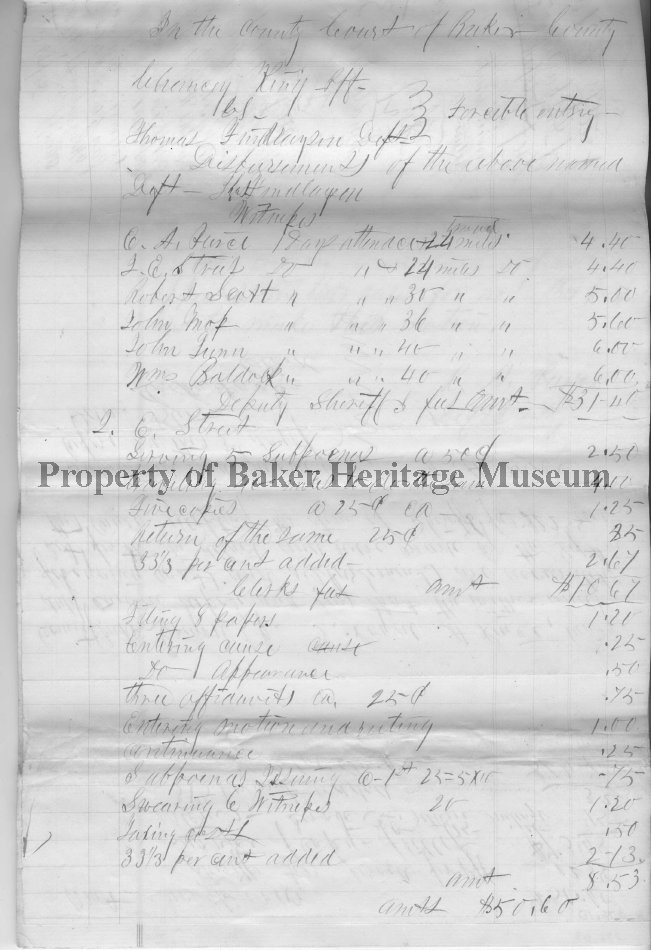 In the County Court of Baker County
King Plff
vs Forcible entry
Thomas Findlayson Deft
Disbursements of the above named
Deft Findlayson
Witnesses
C. A. 1 Days attendce 24 miles travel 4.40
Do " 24 miles Do 4.40
Robert Scott " " " 30 " " 5.00
John " " " 36 " " 5.60
John " " " 40 " " 6.00
Wms Baldock " " " 40 " " 6.00
Deputy Sheriffs fees Amt $31.40
E. Street
Serving 5 Subpoenas @ 50¢ 2.50
Property of Baker Heritage Museum
4.00
Five copies @ 25¢ ea 1.25
Return of the same 25¢ 25
33 1/3 per cent added 2.67
Clerks fees amt $10.67
Filing 8 papers 1.20
Entering cause cause .25
Do Appearance .50
three affidavits ea. 25¢ .75
Entering motion and ruling 1.00
Continuance .25
Subpoenas Issuing .75
Swearing 6 Witnesses 20 1.20
Taxing costs .50
33 1/3 per cent added 2.13
amt 8.53
amts $50.60